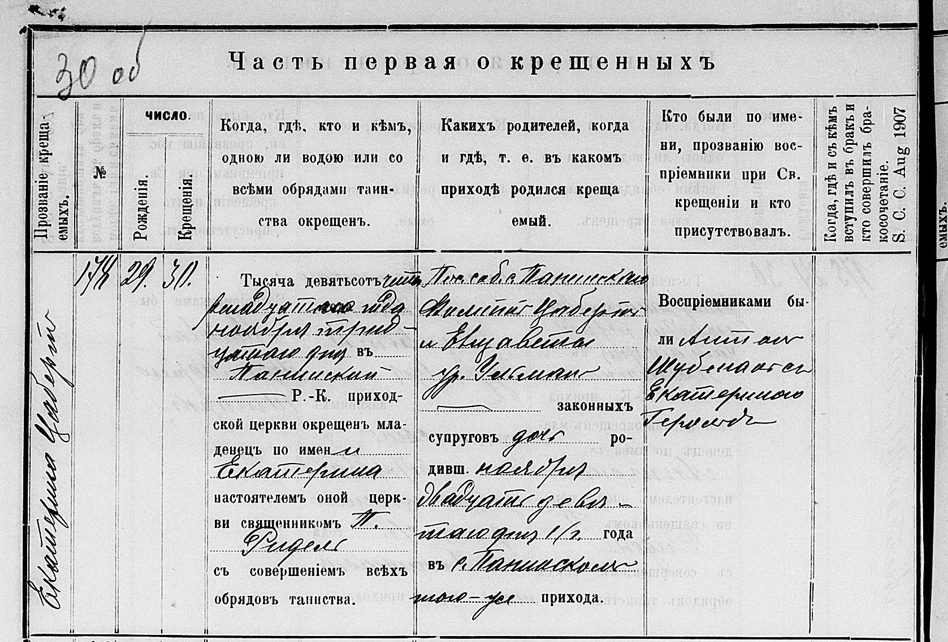 30 об
Часть первая о крещенныхъ
Прозваніе креща-
емыхъ.
№
ЧИСЛО.
Рожденія.
Крещенія.
Когда, гдѣ, кто и кѣмъ,
одною ли водою или со
всѣми обрядами таин-
ства окрещенъ.
Какихъ родителей, когда
и гдѣ, т. е. въ какомъ
приходѣ родился креща
емый.
Кто были по име-
ни, прозванію вос-
пріемники при Св.
крещеніи и кто
присутствовалъ.
Когда, гдѣ и съ кѣмъ
вступилъ въ бракъ и
кто совершилъ бра-
косочетаніе.
S. C. C. Aug 1907
емыхъ.
Екатерина Цобертъ
178
29.
30.
Тысяча девятьсотъ четыр
надцатаго года
ноября трид-
цатаго дня въ
Панинской
Р.-К. приход-
ской церкви окрещенъ мла-
денецъ по имени
Екатерина
настоятелемъ оной церк-
ви священникомъ П.
Ридель
съ совершеніемъ всѣхъ
обрядовъ таинства.
Пос. соб. с. Панинского
Цобертъ
и Елизаветы
ур. Гельманъ
законныхъ
супруговъ дочь ро-
дивш. ноября
двадцать девя-
таго дня с/г. года
въ с. Панинскомъ
того-же прихода.
Воспріемниками бы-
ли Антонъ
Екатерина